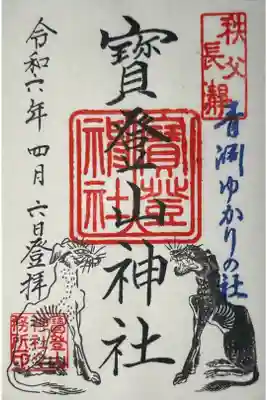 秩父
長瀞
青淵ゆかりの社
寳登山神社
寳登
山
神社
令和六年 四月 六日登拝
寳登山
神社々
務所印